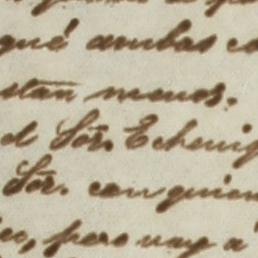 qué ambas co
stan menos.
el Sõr. Echeniq
Sõr. con quien
pero voy a